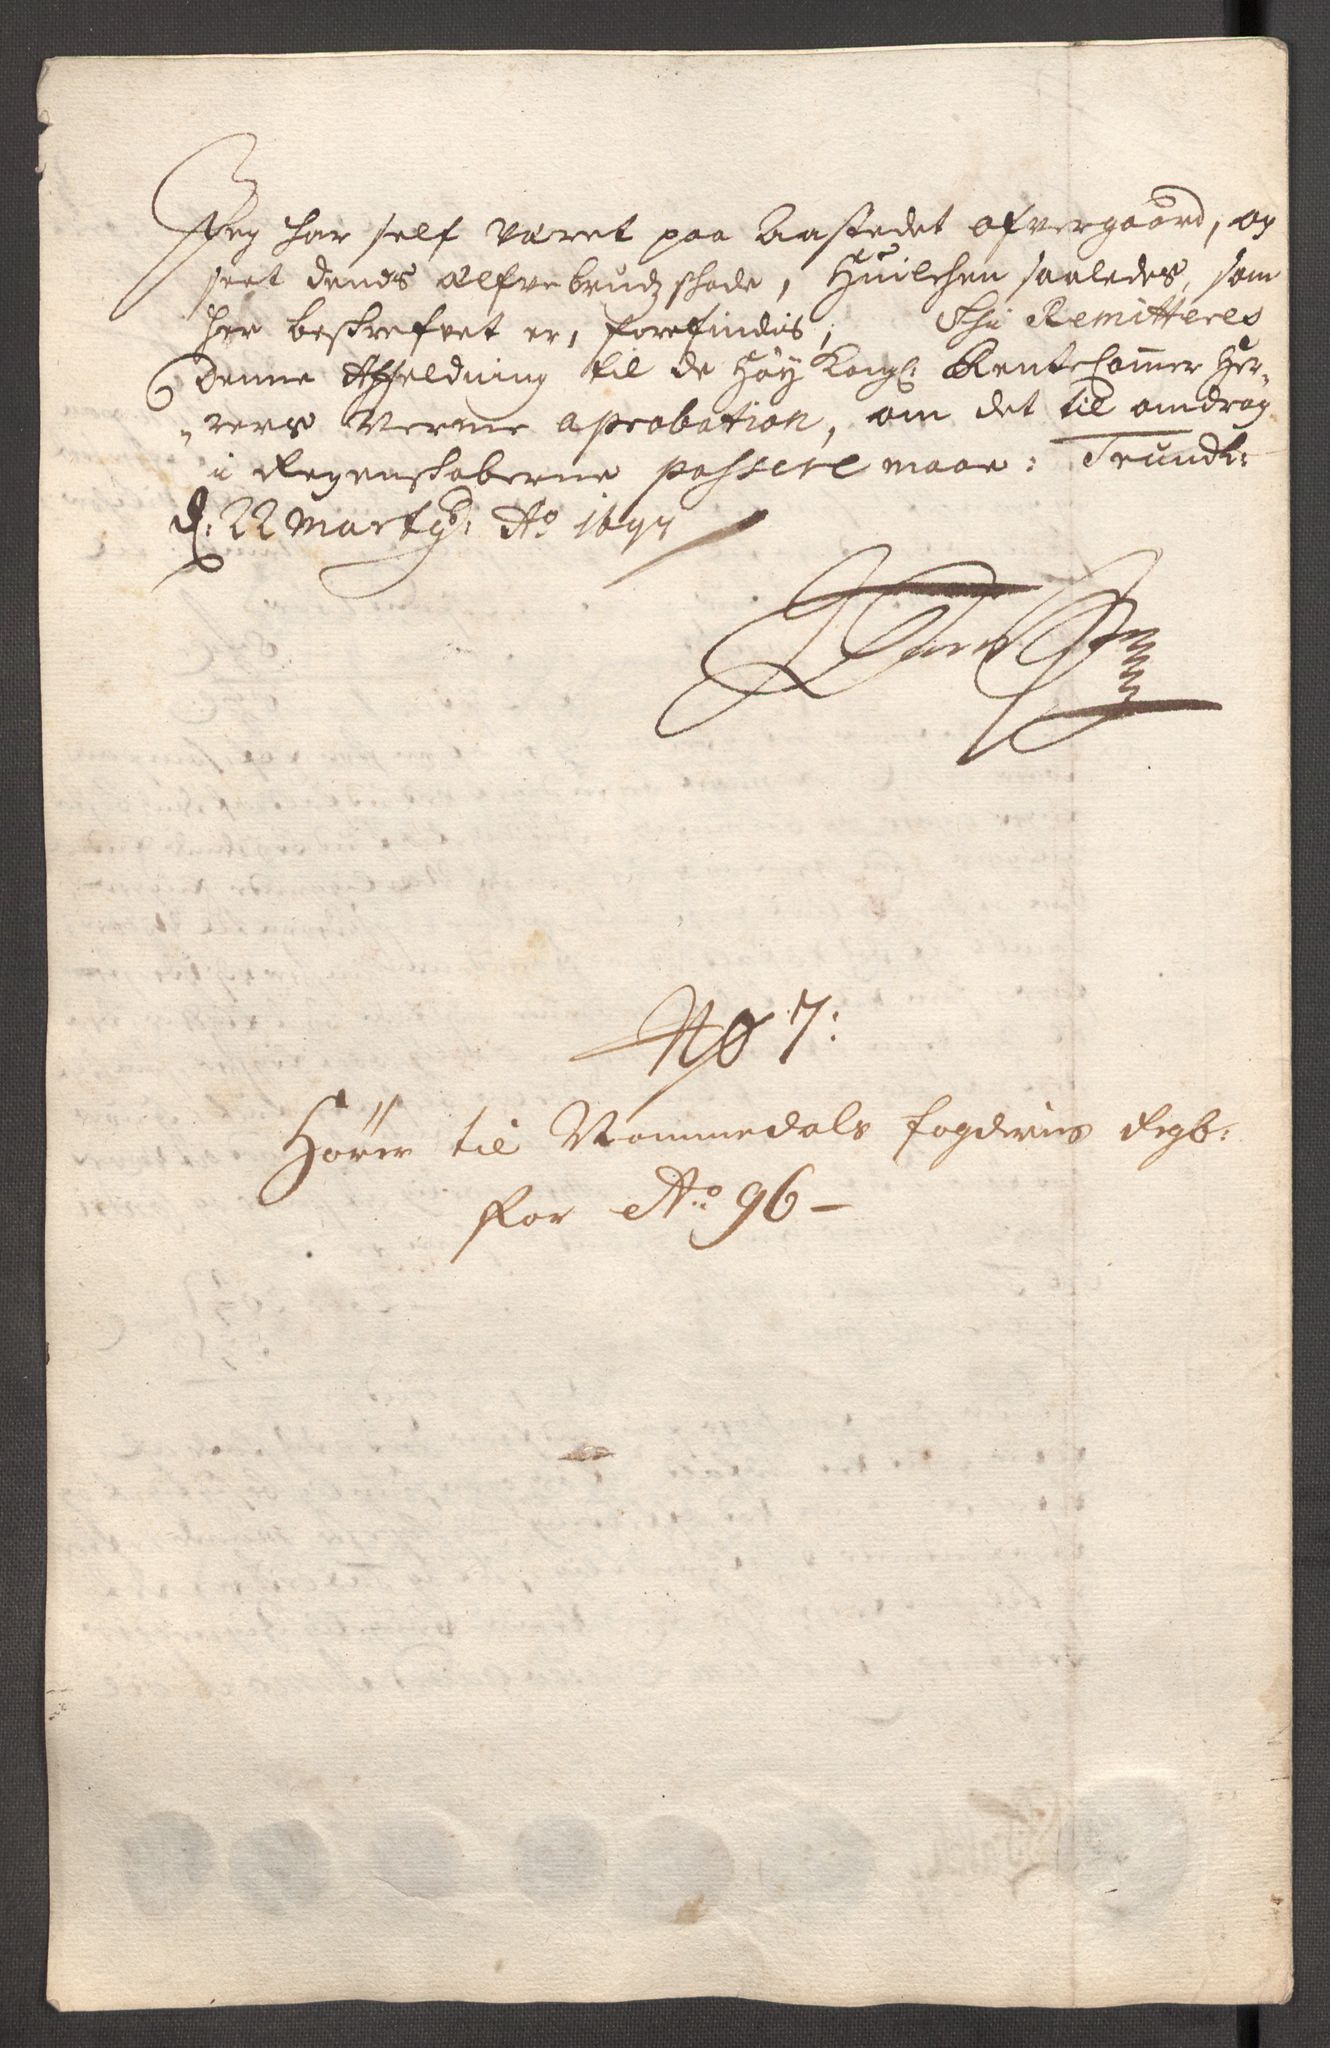 Jeg har self været paa Aastedet ofvergaard, og
seet dends Elfvebrudz skade, Huilchen saaledes, som
her beskrefvet er, forefindis, Thi Remitteres
Denne Affeldning til de Høy Kongl: Rente Camer Her-
rers Verme aprobation, om det til omdrag
i Regenskaberne passere maae: Trundh:
d: 22 Martij: Ao 1697
No 7:
Hører til Nommedals fogderies Regb:
for Ao 96 -